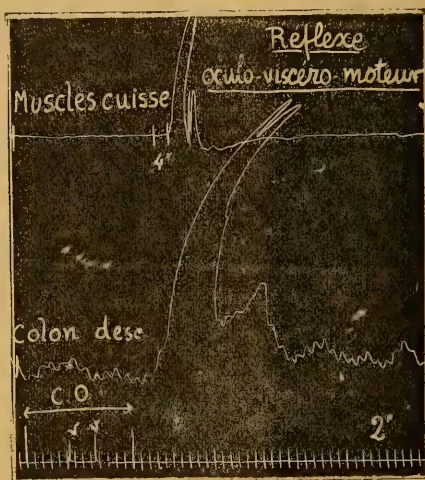 Réflexe
oculo-viscéro-moteur
Muscles cuisse
4"
Colon desc
C.O
2"